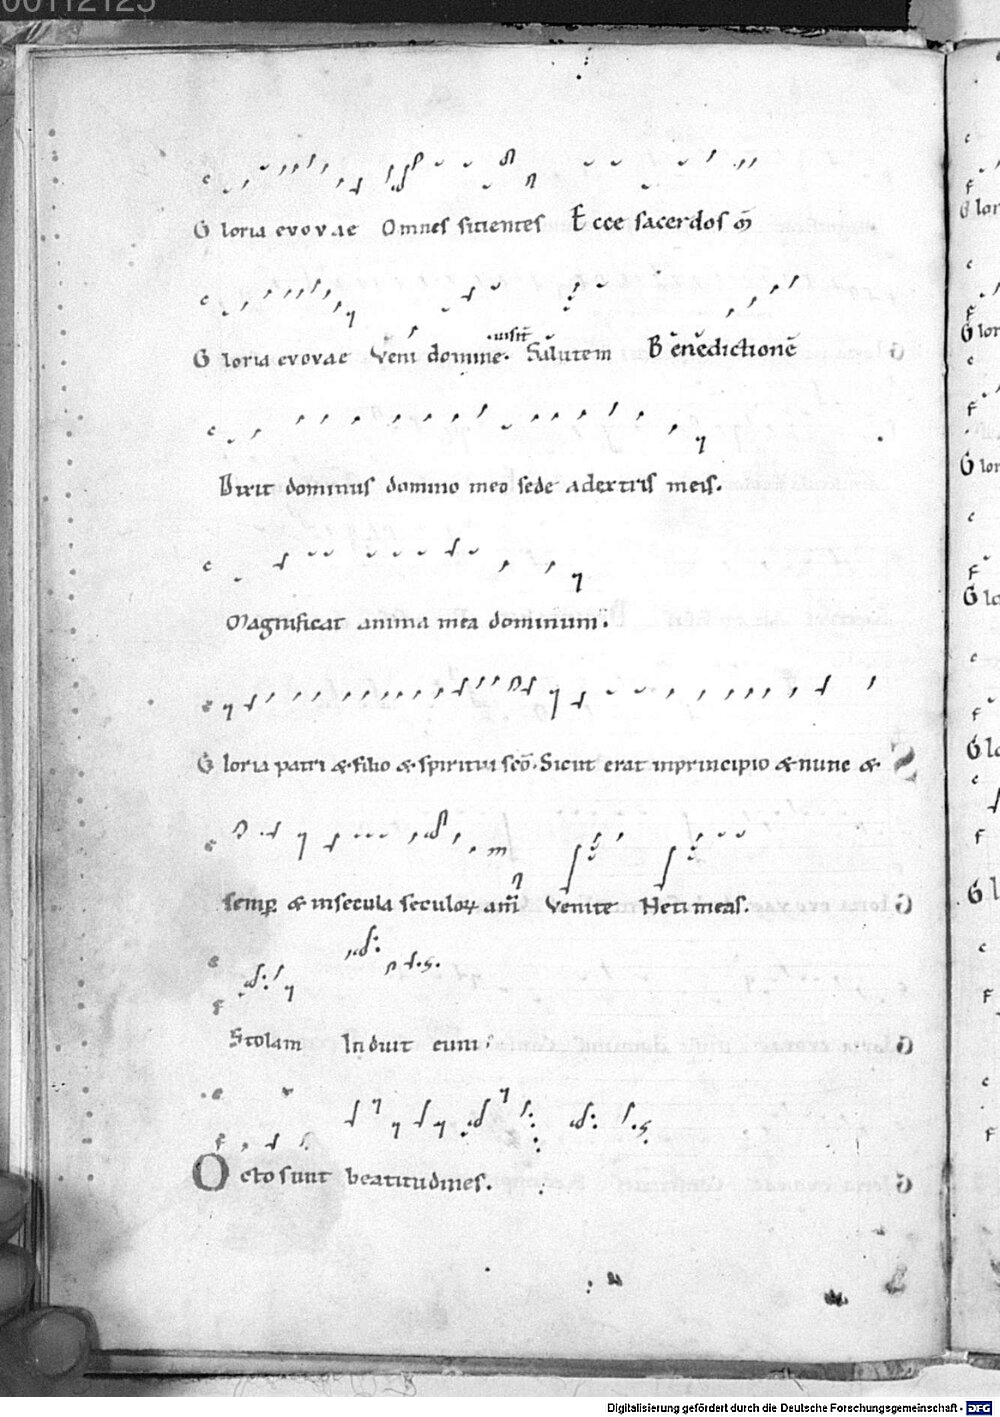 00112125
c
Gloria evovae Omnes sitientes Ecce sacerdos m̄
c
Gloria evovae Veni domine. Salutem Benedictionē
c
Dixit dominus domino meo sede a dextris meis.
c
Magnificat anima mea dominum.
c
Gloria patri & filio & spiritui sc̄o. Sicut erat in principio & nunc &
c
semp & in secula seculoꝝ am̄ Venite Hei meas.
c
f
Stolam Induit eum
c
f
Octo sunt beatitudines.
Digitalisierung gefördert durch die Deutsche Forschungsgemeinschaft - DFG